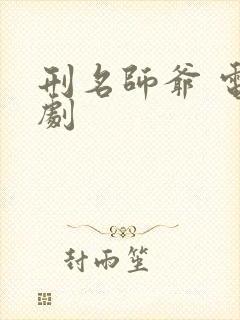 刑名師爺 電
劇
封雨笙